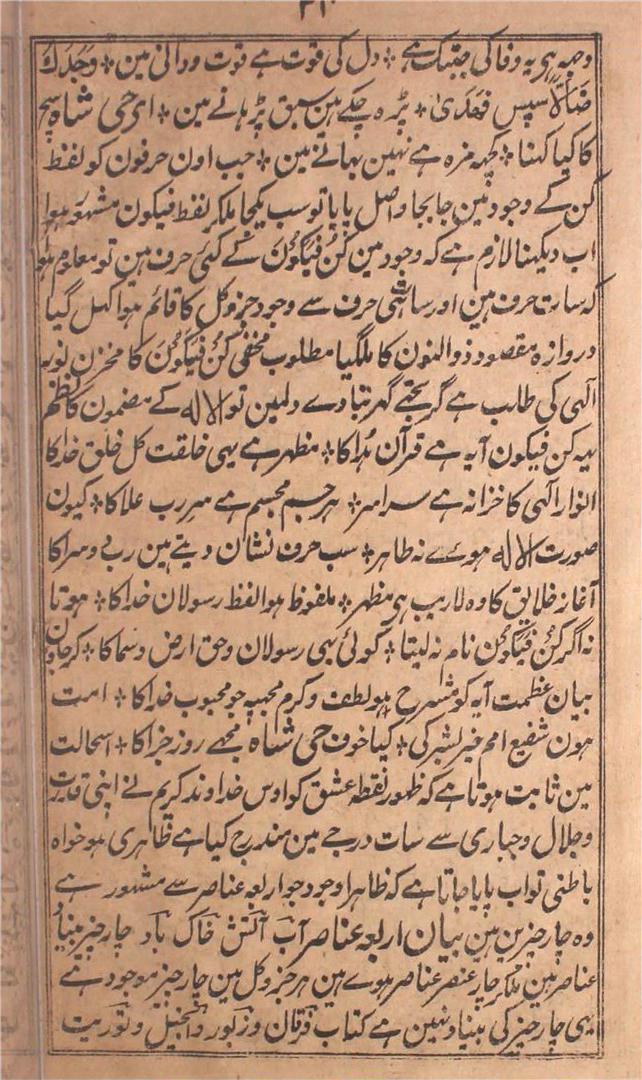 ۳۱۰
وجہہ ہی یہ وفا کی جتبک ہے ٭ دل کی قوت ہے قوت ووانی مین ٭ وَجَدَكَ
ضَالّاً سپس فَهَدَىٰ ٭ پڑہ چکے ہین سبق پڑہانے مین ٭ ای حی شاہ سچ
کا کیا کہنا ٭ کچہہ مزہ ہے نہین بہانے مین ٭ جب اون حرفون کو لفظ
کن کے وجود مین جابجا واصل پایا تو سب یکجا ملکر لفظ فیکون مشہور ہوا
اب دیکہنا لازم ہے کہ وجود مین کُنْ فَیَکُوْنَ کے کئی حرف ہین تو معلوم ہوا
کہ سات حرف ہین اور ساتہی حرف سے وجود جز و کل کا قائم ہوا کہل گیا
دروازہ مقصود ذوالنون کا ملگیا مطلوب مخفی کُنْ فَیَکُوْنَ کا مخزن نور
الٰہی کی طالب ہے گر تجہے گہر بتا دے دلمین تو الا لہ کے مضمون کا نظم
یہہ کن فیکون آیہ ہے قرآن ہُدا کا ٭ مظہر ہے یہی خلقت کل خلق خدا کا
انوار الٰہی کا خزانہ ہے سراسر ٭ ہر جسم مجسم ہے مہر رب علا کا ٭ کیون
صورت الا لہ ہوے نہ ظاہر ٭ سب حرف نشان دیتے ہین رب دوسرا کا
آغاز خلایق کا وہ لاریب ہی مظہر ٭ ملفوظ ہوا لفظ رسولان خدا کا ٭ ہوتا
نہ اگر کُنْ فَیَکُوْنَ نام نہ لیتا ٭ کوئی بہی رسولان و حق ارض و سما کا ٭ کر جاون
بیان عظمت آیہ کو مشرح ٭ ہو لطف و کرم مجہپہ جو محبوب خدا کا ٭ امت
ہون شفیع امم خیر البشر کی ٭ کیا خوف حی شاہ مجہے روز جزا کا ٭ اسحالت
مین ثابت ہوتا ہے کہ ظہور نقطہ عشق کو اوس خداوند کریم نے اپنی قدرت
و جلال و جباری سے سات درجے مین مندرج کیا ہے ظاہری ہو خواہ
باطنی تو اب پایا جاتا ہے کہ ظاہرا وجود جو اربعہ عناصر سے مشہور ہے
وہ چار چیزین ہین بیان اربعہ عناصر آب آتش خاک باد چار چیز بنیاد
عناصر ہین ملکر چار عنصر عناصر ہوے ہین ہر جز و کل مین چار چیز موجود ہے
یہی چار چیز کی بنیاد مین ہے کتاب فرقان و زبور و انجیل و توریت